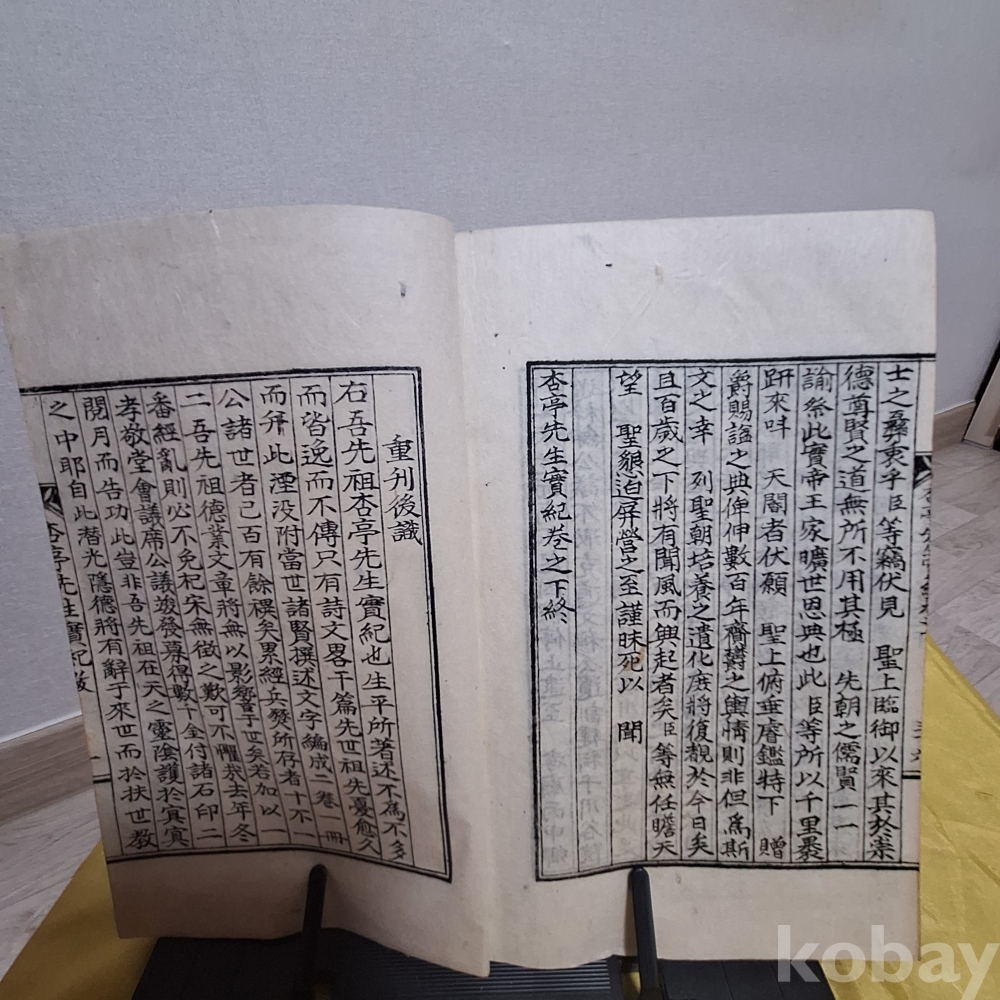 士之彛衷乎臣等竊伏見 聖上臨御以來其於崇
德尊賢之道無所不用其極 先朝之儒賢一一
諭祭此實帝王家曠世恩典也此臣等所以千里裹
趼來呌 天閽者伏願 聖上俯垂睿鑑特下 贈
爵賜謚之典俾伸數百年齋欝之輿情則非但爲斯
文之幸 列聖朝培養之遺化庶將復覩於今日矣
且百歲之下將有聞風而興起者矣臣等無任瞻天
望 聖懇迫屏營之至謹昧死以 聞
杏亭先生實紀卷之下終
重刋後識
右吾先祖杏亭先生實紀也生平所著述不爲不多
而皆逸而不傳只有詩文畧干篇先世祖先憂愈久
而彌此湮没附當世諸賢撰述文字編成二卷一冊
公諸世者已百有餘禩矣累經兵燹所存者十不一
二吾先祖德業文章將無以影響于世矣若加以一
番經亂則必不免杞宋無徵之歎可不懼哉去年冬
孝敬堂會議席公議竣發募得數千金付諸石印二
閱月而告功此豈非吾先祖在天之靈陰護於冥冥
之中耶自此潜光隱德將有辭于來世而於扶世敎
杏亭先生實紀跋
kobay